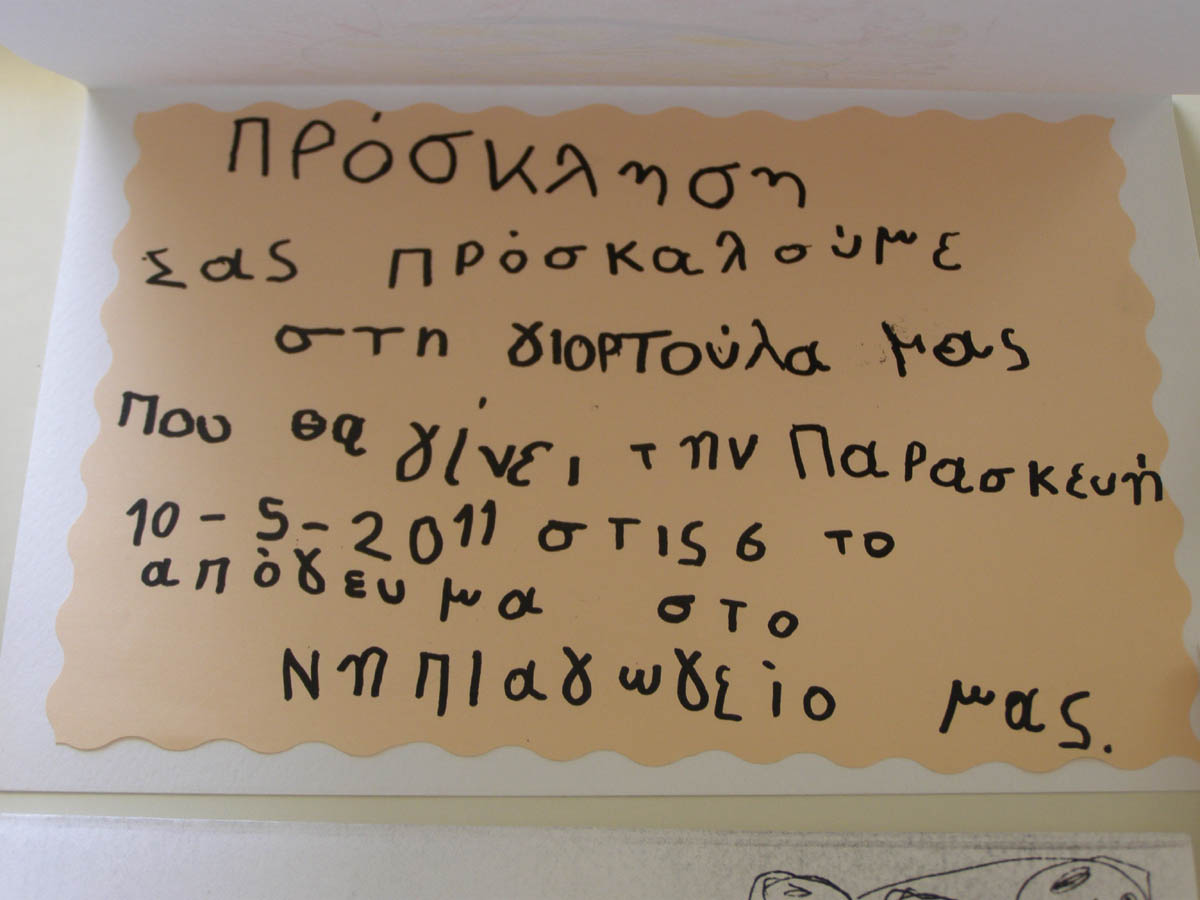 Πρόσκληση
Σας πρόσκαλούμε
στη γιορτούλα μας
που θα γίνει την Παρασκευή
10-5-2011 στις 6 το
απόγευμα στο
Νηπιαγωγείο μας.